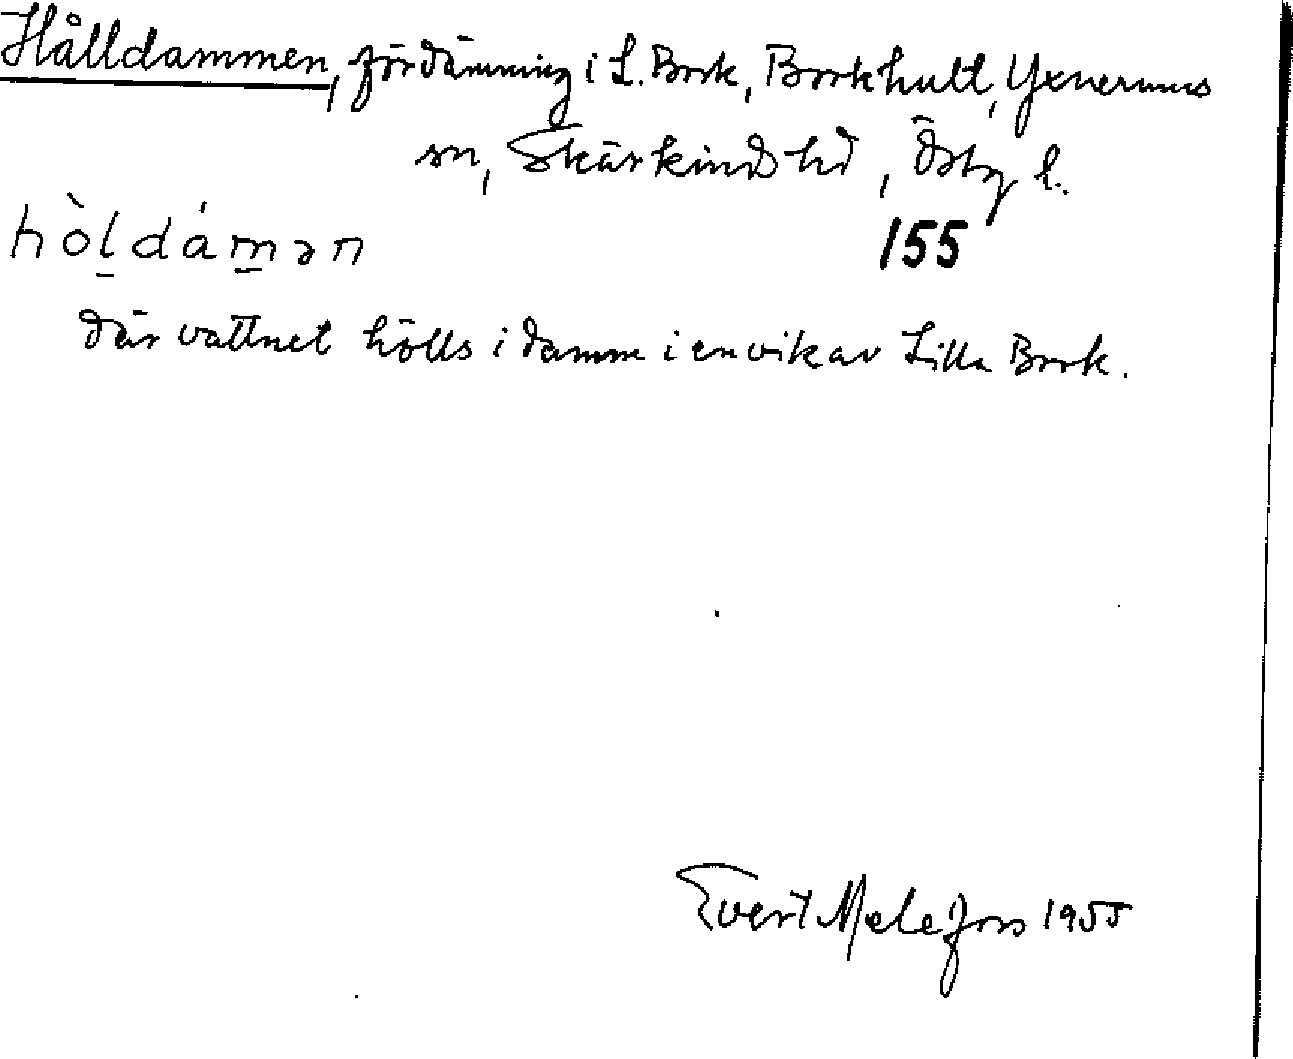 Hålldammen, fördämning i L. Bork, Borkhult, Yxnerums
sn, Skärkinds hd, Östg l.
hòldámən 155
där vattnet hölls i damm i en vik av Lilla Bork.
Evert Melefors 1955